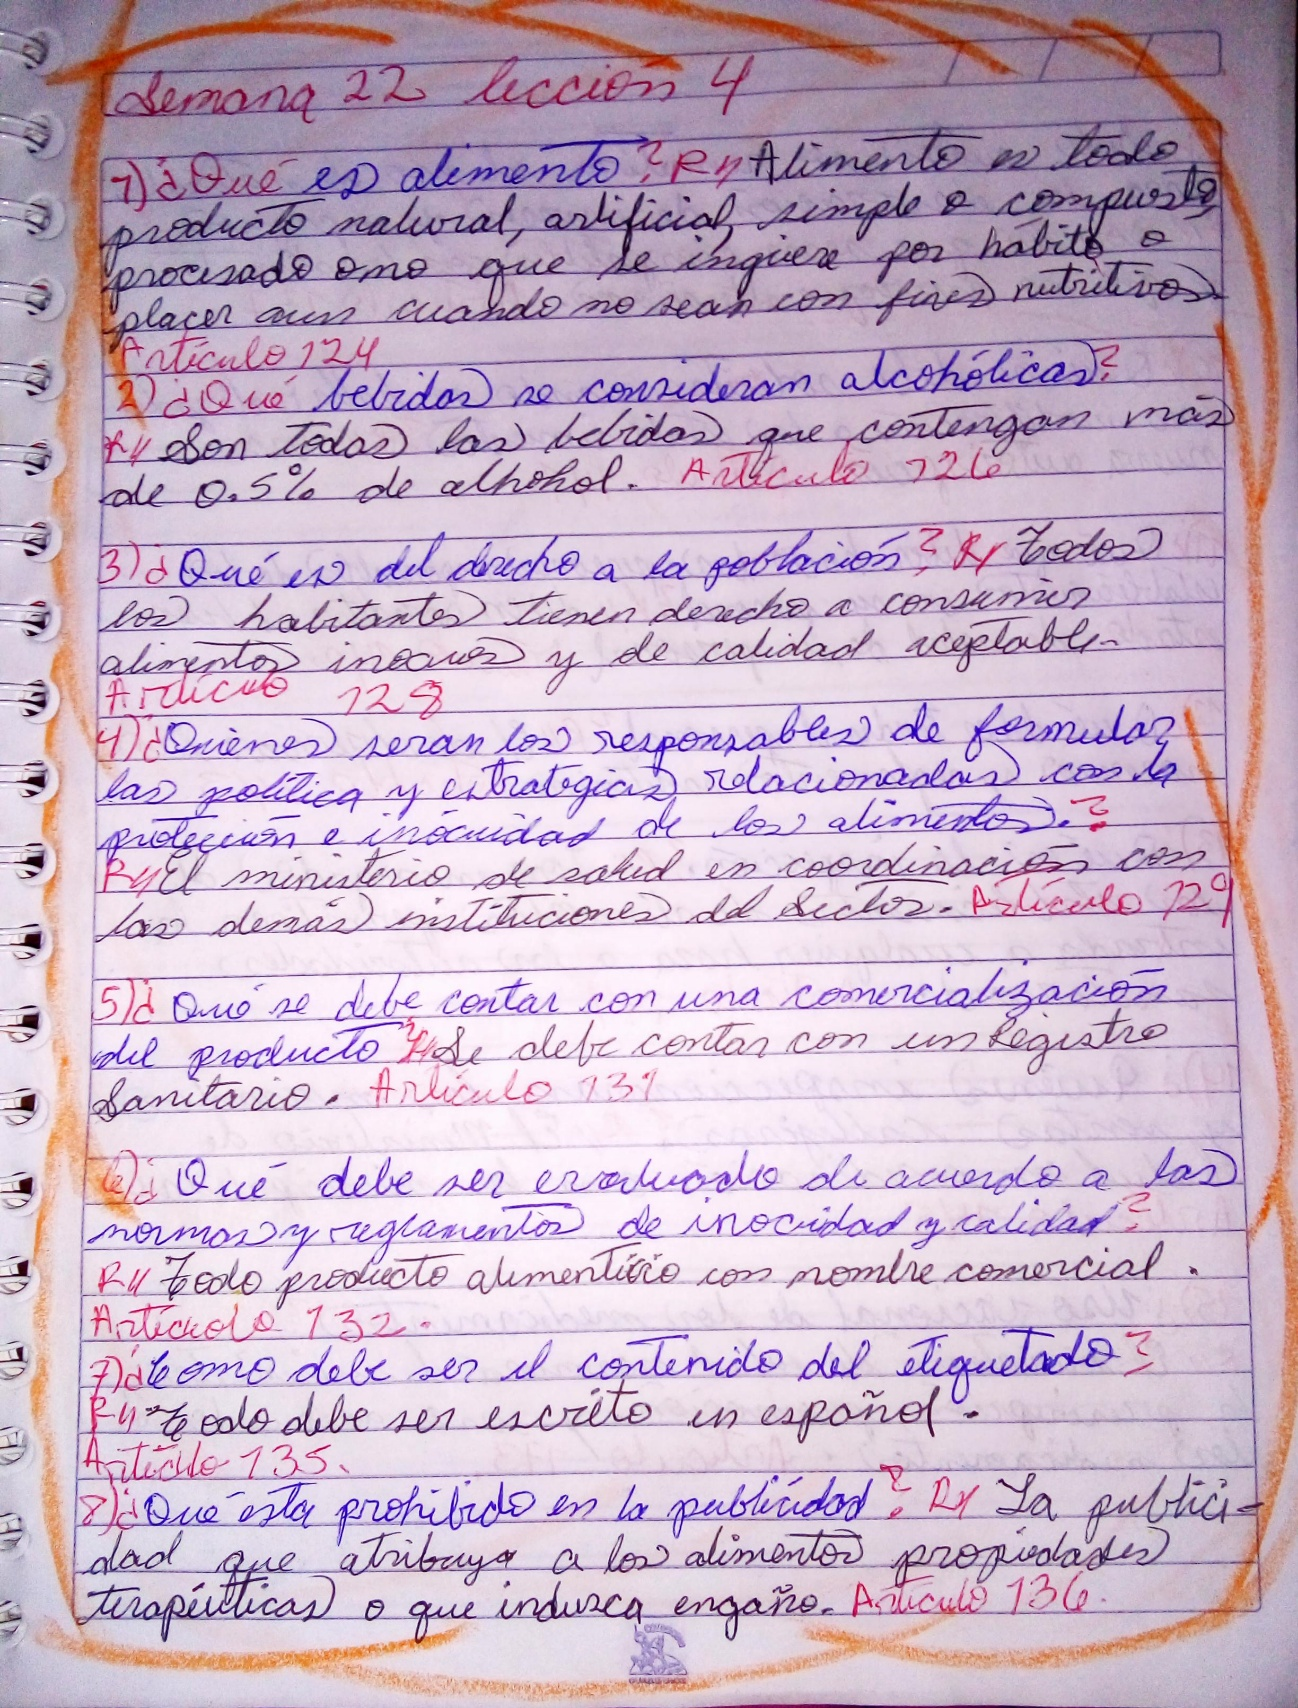 Semana 22 lección 4
1) ¿Qué es alimento? R// Alimento es todo
producto natural, artificial, simple o compuesto,
procesado o no que se ingiere por hábito o
placer aun cuando no sean con fines nutritivos
Artículo 124
2) ¿Qué bebidas se consideran alcohólicas?
R// Son todas las bebidas que contengan más
de 0.5% de alhohol. Artículo 126
3) ¿Qué es del derecho a la población? R// Todos
los habitantes tienen derecho a consumir
alimentos inocuos y de calidad aceptable.
Artículo 128
4) ¿Quienes seran los responsables de formular
las política y estrategias relacionadas con la
protección e inocuidad de los alimentos.?
R// El ministerio de salud en coordinación con
las demás instituciones del Sector. Artículo 129
5) ¿Qué se debe contar con una comercialización
del producto? R// Se debe contar con un Registro
Sanitario. Artículo 131
6) ¿Qué debe ser evaluado de acuerdo a las
normas y reglamentos de inocuidad y calidad?
R// Todo producto alimenticio con nombre comercial.
Artículo 132.
7) ¿Como debe ser el contenido del etiquetado?
R// Todo debe ser escrito en español.
Artículo 135.
8) ¿Qué esta prohibido en la publicidad? R// La publici-
dad que atribuya a los alimentos propiedades
terapéuticas o que induzca engaño. Artículo 136.